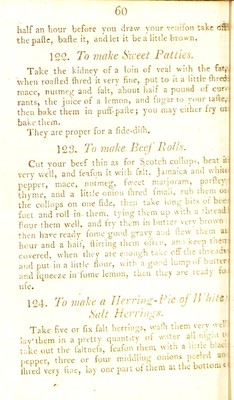 60
half an hour before you draw your venison take off
the paste, baste it, and let it be a little brown.
122. To make Sweet Patties.
Take the kidney of a loin of veal with the fat,
when roasted shred it very fine, put to it a little shred
mace, nutmeg and salt, about half a pound of cur-
rants, the juice of a lemon, and sugar to your taste,
then bake them in puff-paste; you may either fry or
bake them.
They are proper for a side-dish.
123. To make Beef Rolls.
Cut your beef thin as for Scotch collops, beat it
very well, and season it with salt, Jamaica and white
pepper, mace, nutmeg, sweet marjoram, parsley,
thyme, and a little onion shred small, rub them on
the collops on one side, then take long bits of beef
suet and roll in them, tying them up with a thread;
flour them well, and fry them in butter very brown;
then have ready some good gravy and stew them an
hour and a half, stirring them often, and keep them
covered, when they are enough take off the threads,
and put in a little flour, with a good lump of butter,
and squeeze in some lemon, then they are ready for
use.
124. To make a Herring-Pie of White
Salt Herrings.
Take five or six salt herrings, wash them very well,
lay them in a pretty quantity of water all night to
take out the saltness, season them with a little black
pepper, three or four middling onions peeled and
shred very fine, lay one part of them at the bottom of